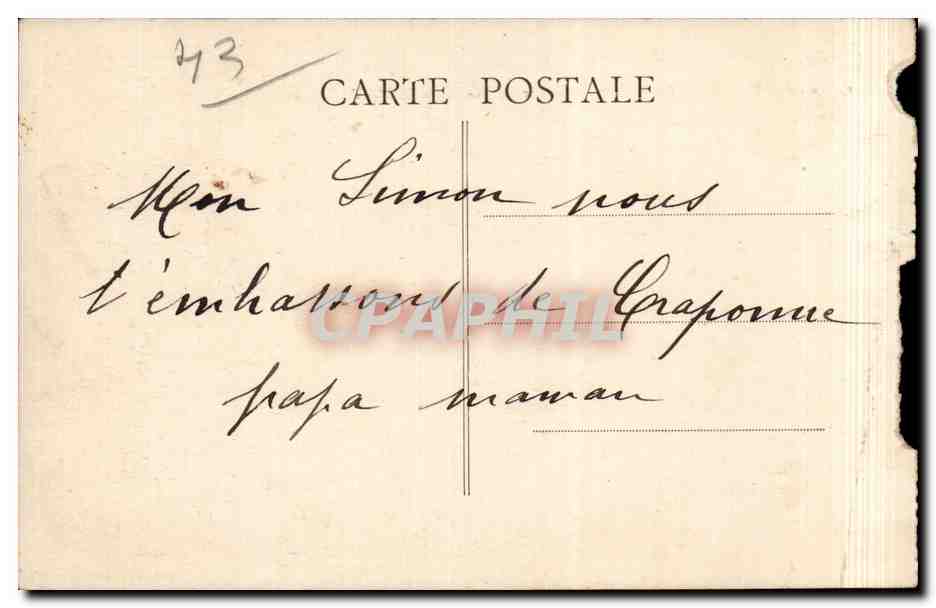 43
CARTE POSTALE
Mon Simon nous
t'émbassons de Craponne
papa maman
CPAPHIL